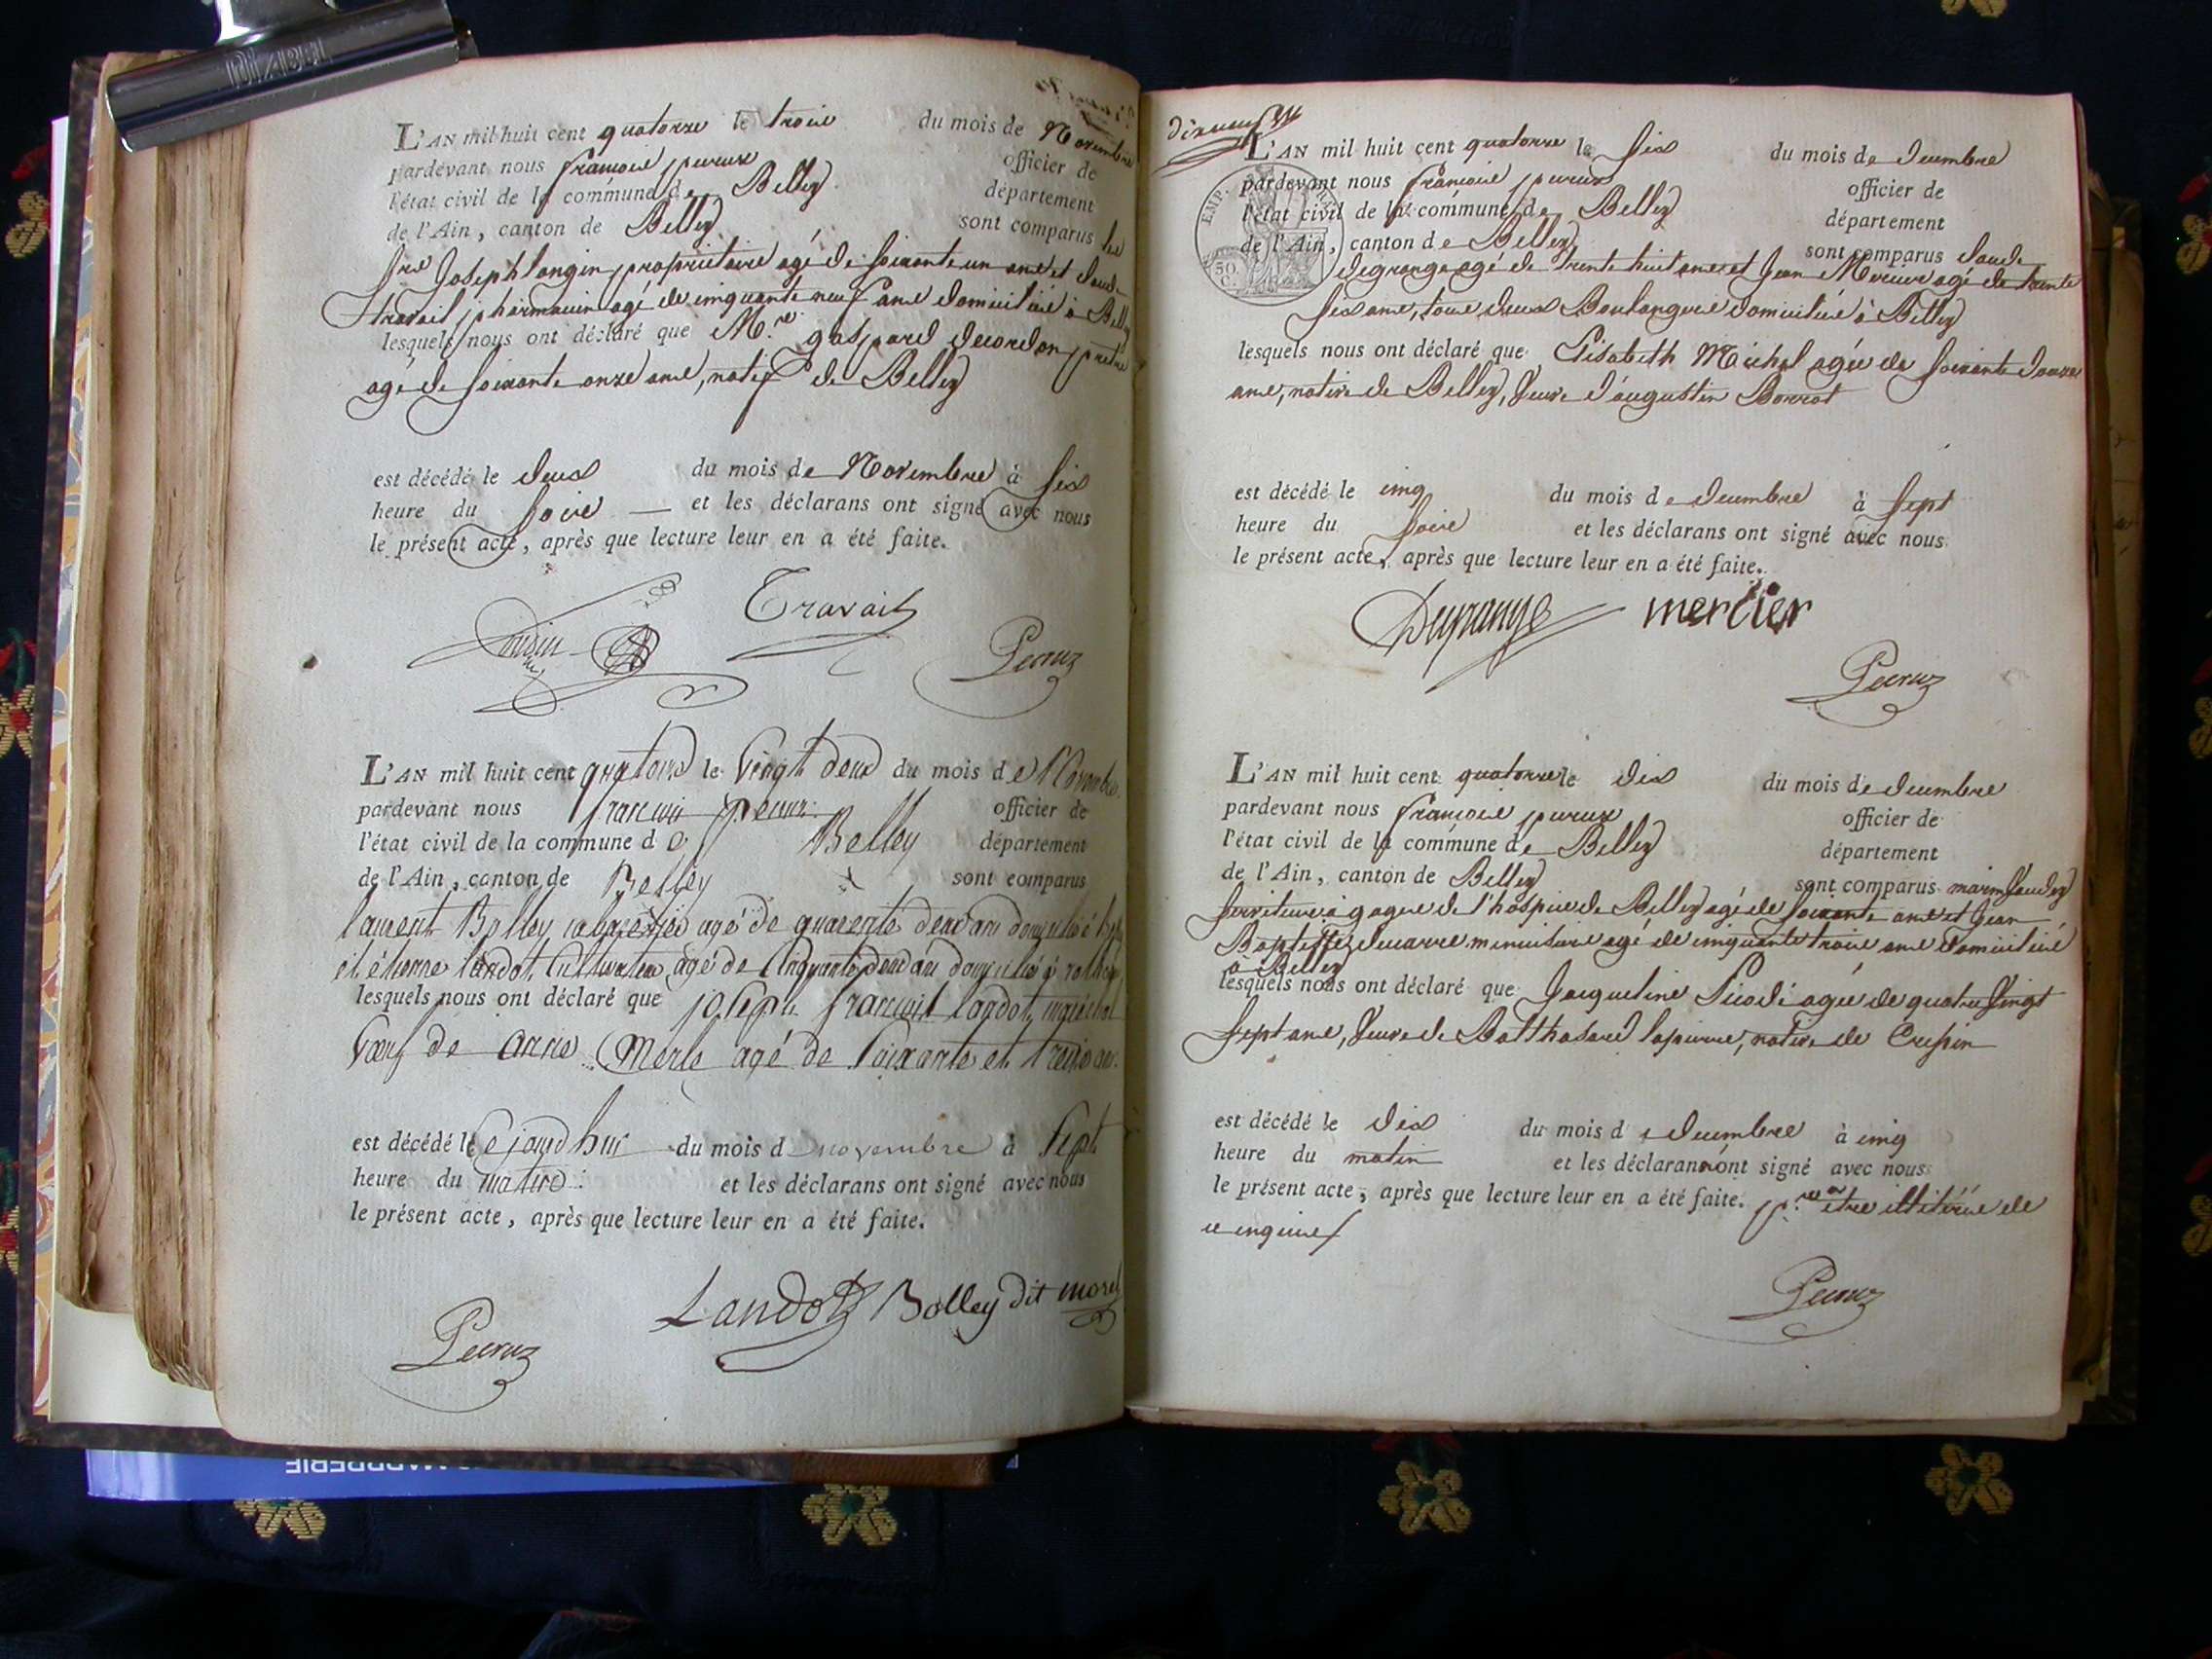 DIABEL
L'AN mil huit cent quatorze le trois du mois de Novembre
pardevant nous françois officier de
l'état civil de la commune de Belley département
de l'Ain, canton de Belley sont comparus les
Joseph propriétaire agé de soixante un ans et Claude
travail pharmacien agé de cinquante neuf ans domiciliés à
lesquels nous ont déclaré que M.re gaspard decordon prêtre
agé de soixante onze ans, natif de Belley
est décédé le deux du mois de Novembre à six
heure du soir et les déclarans ont signé avec nous
le présent acte, après que lecture leur en a été faite.
Travail
Pecruz
L'AN mil huit cent quatorze le vingt deux du mois de Novembre
pardevant nous françois officier de
l'état civil de la commune de Belley département
de l'Ain, canton de Belley sont comparus
laurent Bolley agé de quarente deux ans
et étienne landot, Cultivateur, agé de Cinquante deux ans à
lesquels nous ont déclaré que joseph françois landot
de anne Merle agé de soixante et treize
est décédé le Cejourdhui du mois d novembre à sept
heure du matin et les déclarans ont signé avec nous
le présent acte, après que lecture leur en a été faite.
Landot Bolley dit morel
Pecruz
L'AN mil huit cent quatorze le six du mois de decembre
pardevant nous françois officier de
l'état civil de la commune de Belley département
de l'Ain, canton de Belley sont comparus Claude
degrange agé de trente huit ans et Jean Mercier agé de trente
six ans, tous deux Boulangers domiciliés à Belley
lesquels nous ont déclaré que Elisabeth Michel agée de soixante douze
ans, native de Belley, veuve d'augustin
est décédé le cinq du mois de decembre à sept
heure du soir et les déclarans ont signé avec nous
le présent acte, après que lecture leur en a été faite.
Degrange mercier
Pecruz
L'AN mil huit cent quatorze le dix du mois de decembre
pardevant nous françois officier de
l'état civil de la commune de Belley département
de l'Ain, canton de Belley sont comparus
serviteur à gages de l'hospice de Belley agé de soixante ans et Jean
Baptiste agé de cinquante trois ans domiciliés
à Belley
lesquels nous ont déclaré que Jacqueline agée de quatre vingt
sept ans, veuve de Balthasard lapierre, native de
est décédé le dix du mois de decembre à cinq
heure du matin et les déclarans n'ont signé avec nous
le présent acte, après que lecture leur en a été faite. pr être illitérés de
ce enquis
Pecruz